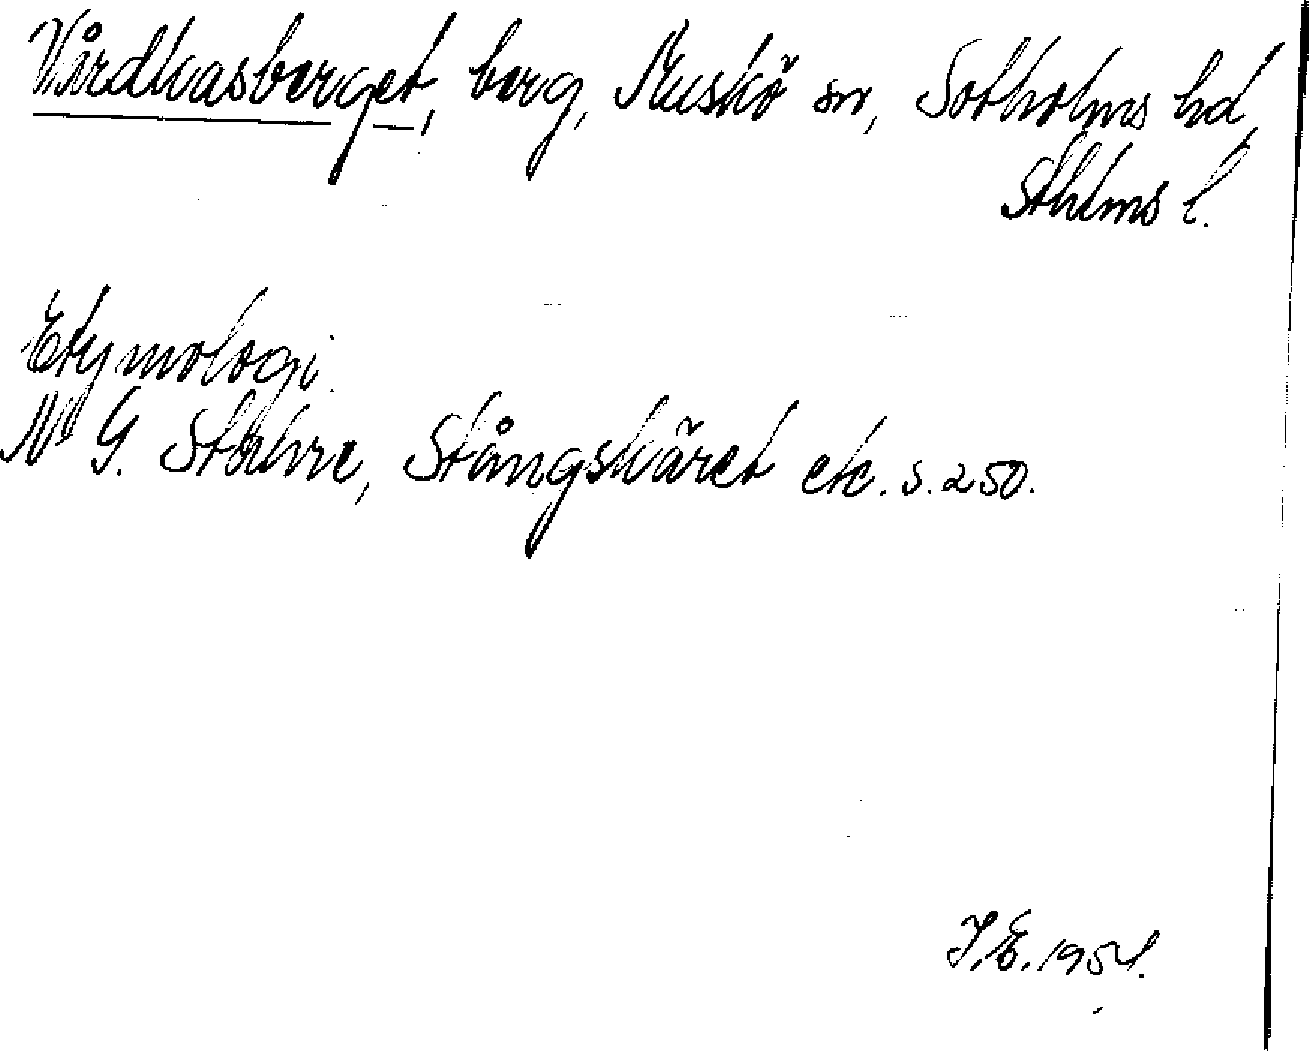 Vårdkasberget, berg, Muskö sn, Sotholms hd,
Sthlms l.
Etymologi.
N G. Stahre, Stångskäret etc. s. 250.
J.E. 1954.